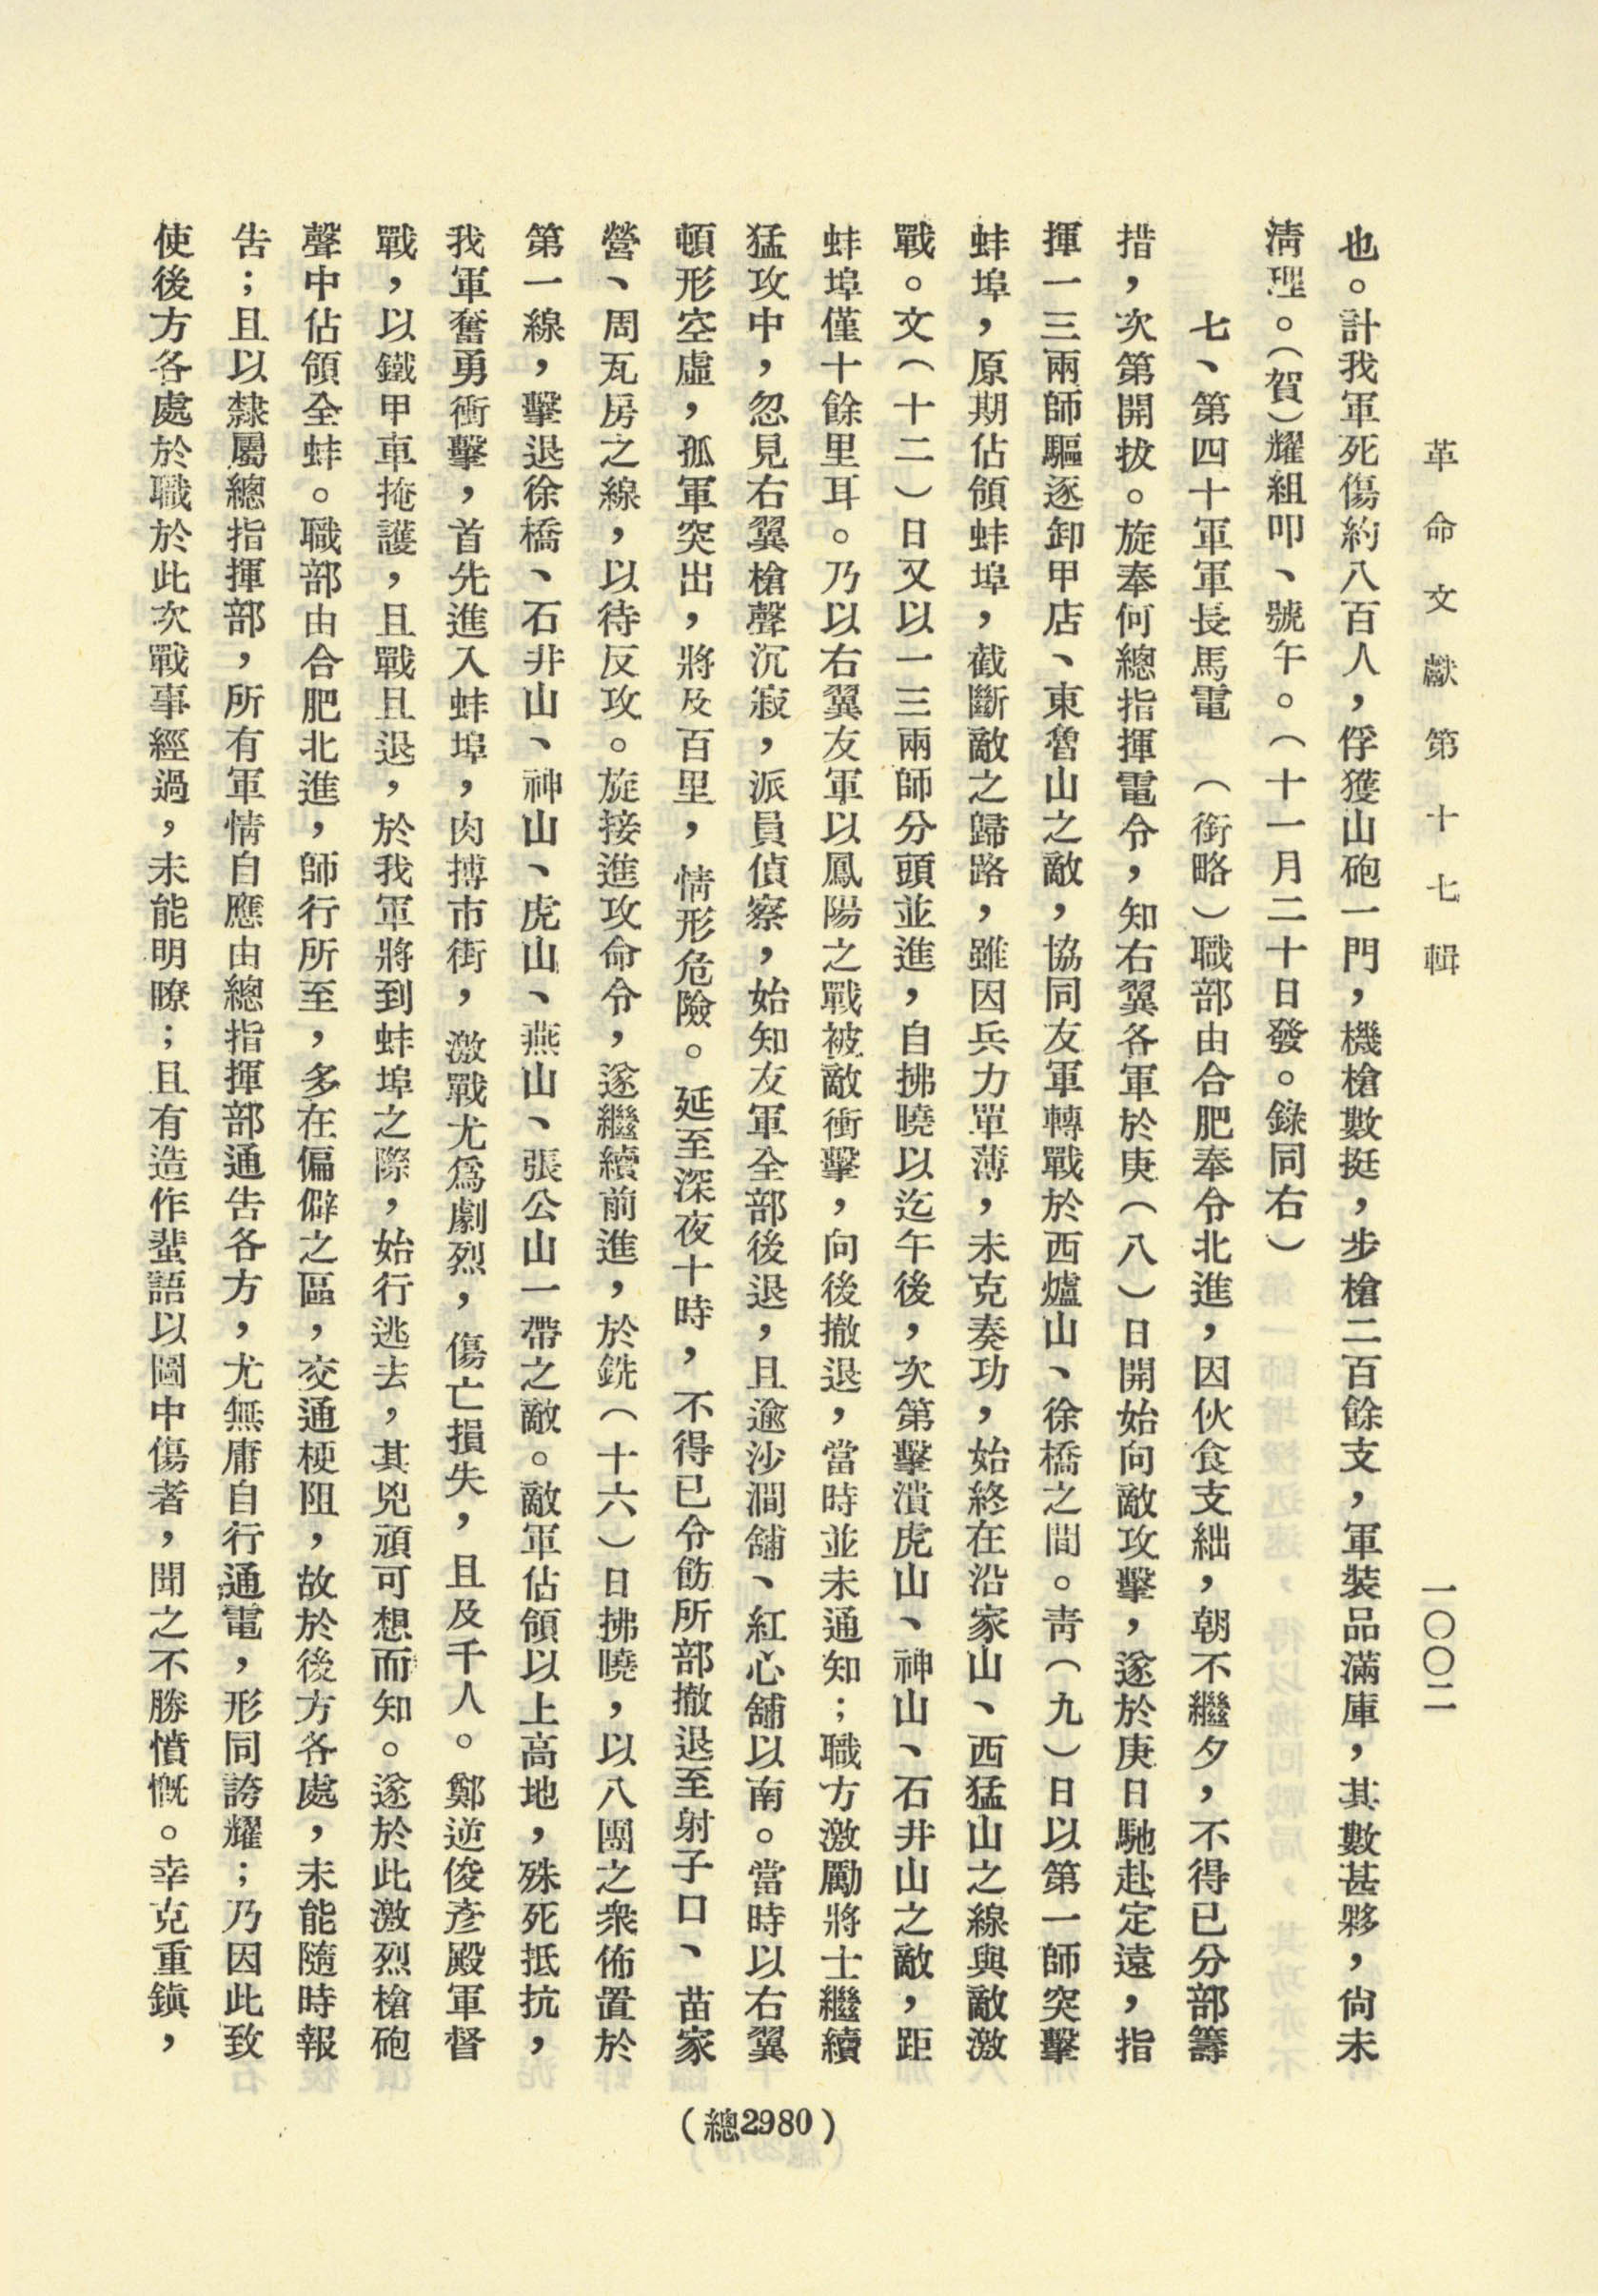 革命文獻第十七輯
一〇〇二
也。計我軍死傷約八百人，俘獲山砲一門，機槍數挺，步槍二百餘支，軍裝品滿庫，其數甚夥，尙未
淸理。（賀）耀組叩、號午。（十一月二十日發。錄同右）
七、第四十軍軍長馬電　（銜略）職部由合肥奉令北進，因伙食支絀，朝不繼夕，不得已分部籌
措，次第開拔。旋奉何總指揮電令，知右翼各軍於庚（八）日開始向敵攻擊，遂於庚日馳赴定遠，指
揮一三兩師驅逐卸甲店、東魯山之敵，協同友軍轉戰於西爐山、徐橋之間。靑（九）日以第一師突擊
蚌埠，原期佔領蚌埠，截斷敵之歸路，雖因兵力單薄，未克奏功，始終在沿家山、西猛山之線與敵激
戰。文（十二）日又以一三兩師分頭並進，自拂曉以迄午後，次第擊潰虎山、神山、石井山之敵，距
蚌埠僅十餘里耳。乃以右翼友軍以鳳陽之戰被敵衝擊，向後撤退，當時並未通知；職方激勵將士繼續
猛攻中，忽見右翼槍聲沉寂，派員偵察，始知友軍全部後退，且逾沙澗舖、紅心舖以南。當時以右翼
頓形空虛，孤軍突出，將及百里，情形危險。延至深夜十時，不得已令飭所部撤退至射子口、苗家
營、周瓦房之線，以待反攻。旋接進攻命令，遂繼續前進，於銑（十六）日拂曉，以八團之衆佈置於
第一線，擊退徐橋、石井山、神山、虎山、燕山、張公山一帶之敵。敵軍佔領以上高地，殊死抵抗，
我軍奮勇衝擊，首先進入蚌埠，肉搏市街，激戰尤爲劇烈，傷亡損失，且及千人。鄭逆俊彥殿軍督
戰，以鐵甲車掩護，且戰且退，於我軍將到蚌埠之際，始行逃去，其兇頑可想而知。遂於此激烈槍砲
聲中佔領全蚌。職部由合肥北進，師行所至，多在偏僻之區，交通梗阻，故於後方各處，未能隨時報
吿；且以隸屬總指揮部，所有軍情自應由總指揮部通吿各方，尤無庸自行通電，形同誇耀；乃因此致
使後方各處於職於此次戰事經過，未能明瞭；且有造作蜚語以圖中傷者，聞之不勝憤慨。幸克重鎭，
（總2980）